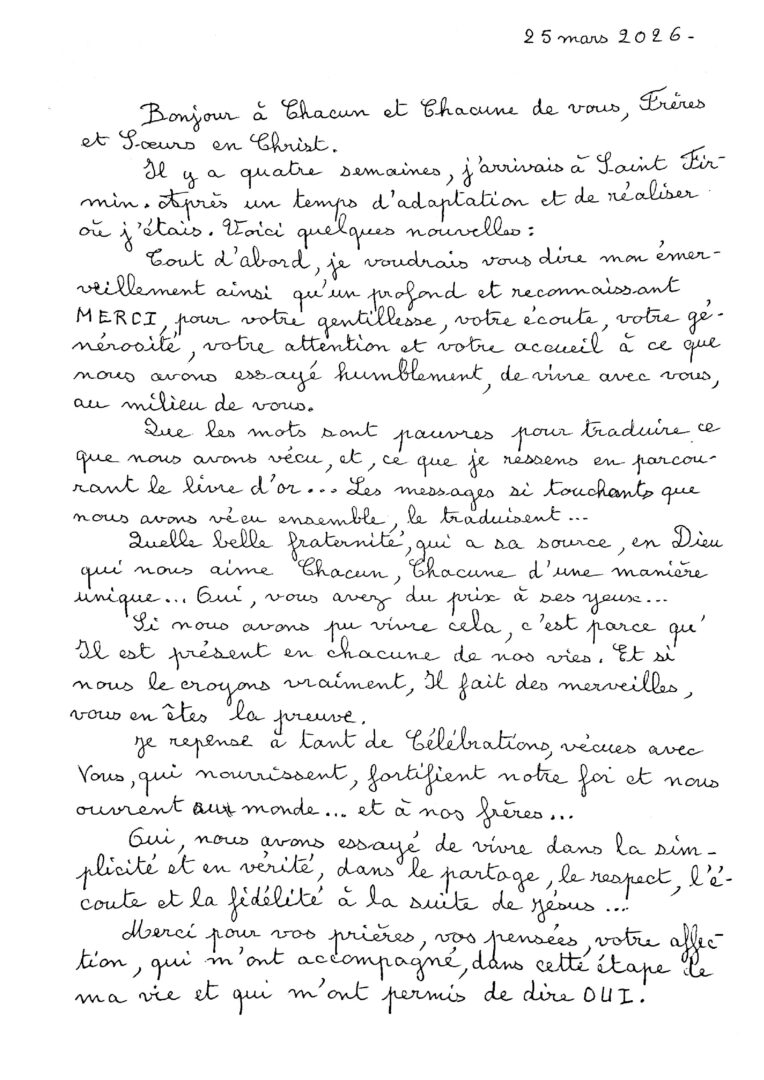 25 mars 2026-
Bonjour à Chacun et Chacune de vous, Frères
et Sœurs en Christ.
Il y a quatre semaines, j'arrivais à Saint Fir-
min. Après un temps d'adaptation et de réaliser
où j'étais. Voici quelques nouvelles :
Tout d'abord, je voudrais vous dire mon émer-
veillement ainsi qu'un profond et reconnaissant
MERCI, pour votre gentillesse, votre écoute, votre gé-
nérosité, votre attention et votre accueil à ce que
nous avons essayé humblement, de vivre avec vous,
au milieu de vous.
Que les mots sont pauvres pour traduire ce
que nous avons vécu, et, ce que je ressens en parcou-
rant le livre d'or... Les messages si touchants que
nous avons vécu ensemble, le traduisent...
Quelle belle fraternité, qui a sa source, en Dieu
qui nous aime Chacun, Chacune d'une manière
unique... Oui, vous avez du prix à ses yeux...
Si nous avons pu vivre cela, c'est parce qu'
Il est présent en chacune de nos vies. Et si
nous le croyons vraiment, Il fait des merveilles,
vous en êtes la preuve.
Je repense à tant de Célébrations, vécues avec
Vous, qui nourrissent, fortifient notre foi et nous
ouvrent aux monde... et à nos frères...
Oui, nous avons essayé de vivre dans la sim-
plicité et en vérité, dans le partage, le respect, l'é-
coute et la fidélité à la suite de Jésus...
Merci pour vos prières, vos pensées, votre affec-
tion, qui m'ont accompagné, dans cette étape de
ma vie et qui m'ont permis de dire OUI.